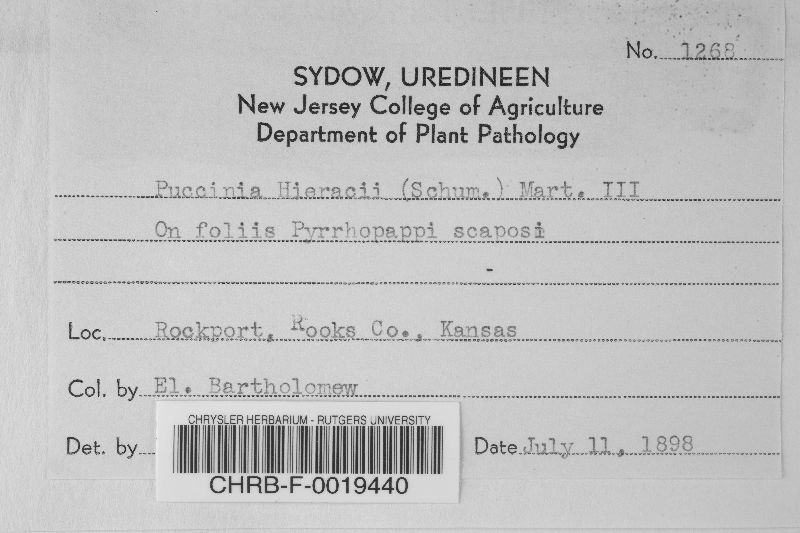 No. 1268
SYDOW, UREDINEEN
New Jersey College of Agriculture
Department of Plant Pathology
Puccinia Hieracii (Schum.) Mart. III
On foliis Pyrrhopappi scaposi
-
Loc. Rockport, Rooks Co., Kansas
Col. by El. Bartholomew
Det. by
Date July 11, 1898
CHRYSLER HERBARIUM - RUTGERS UNIVERSITY
CHRB-F-0019440